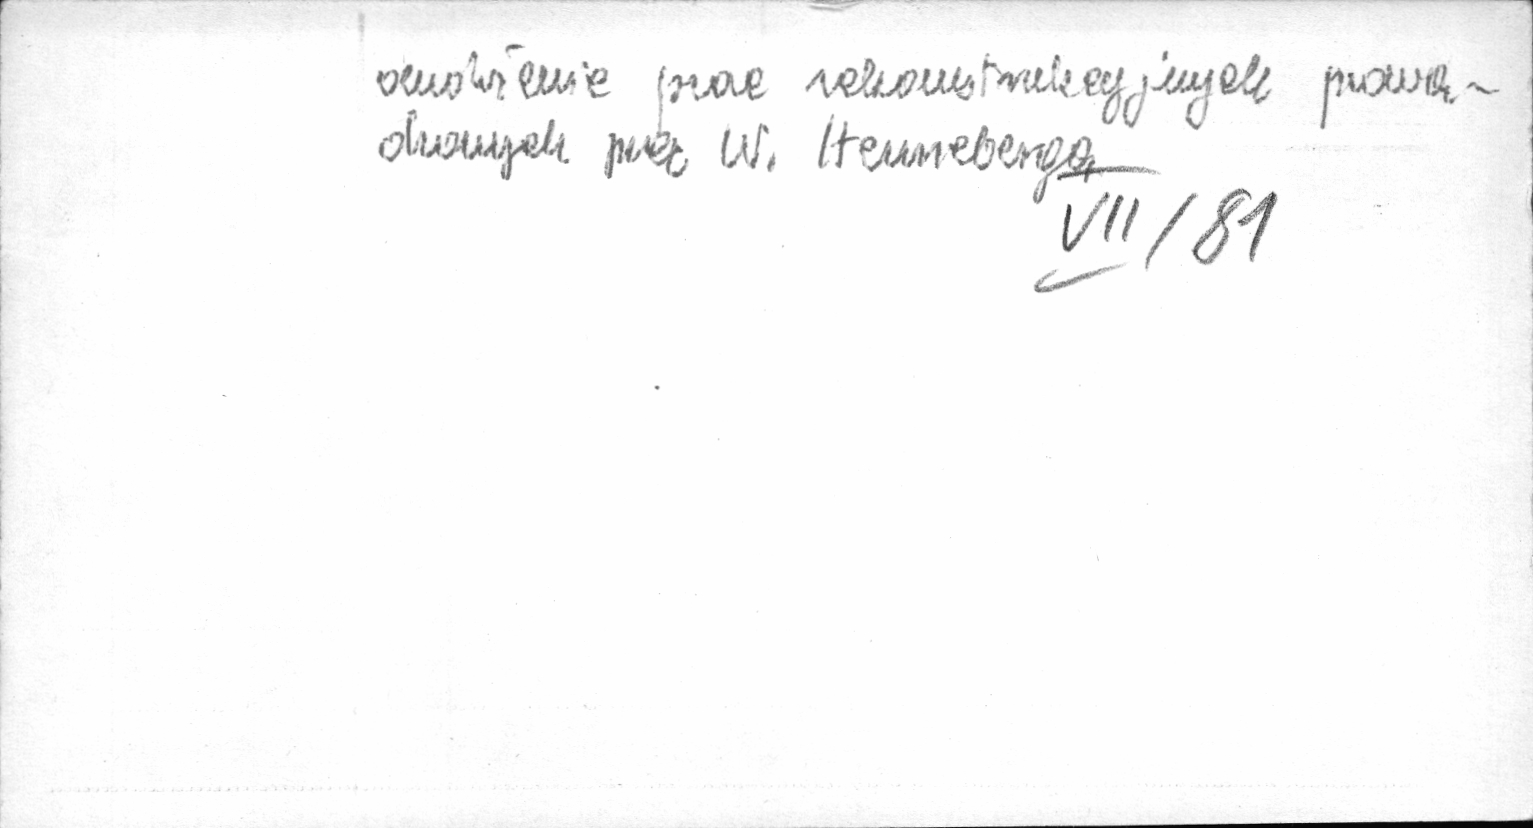 omówienie prac rekonstrukcyjnych prowa-
dzonych przez W. Henneberga
VII/81